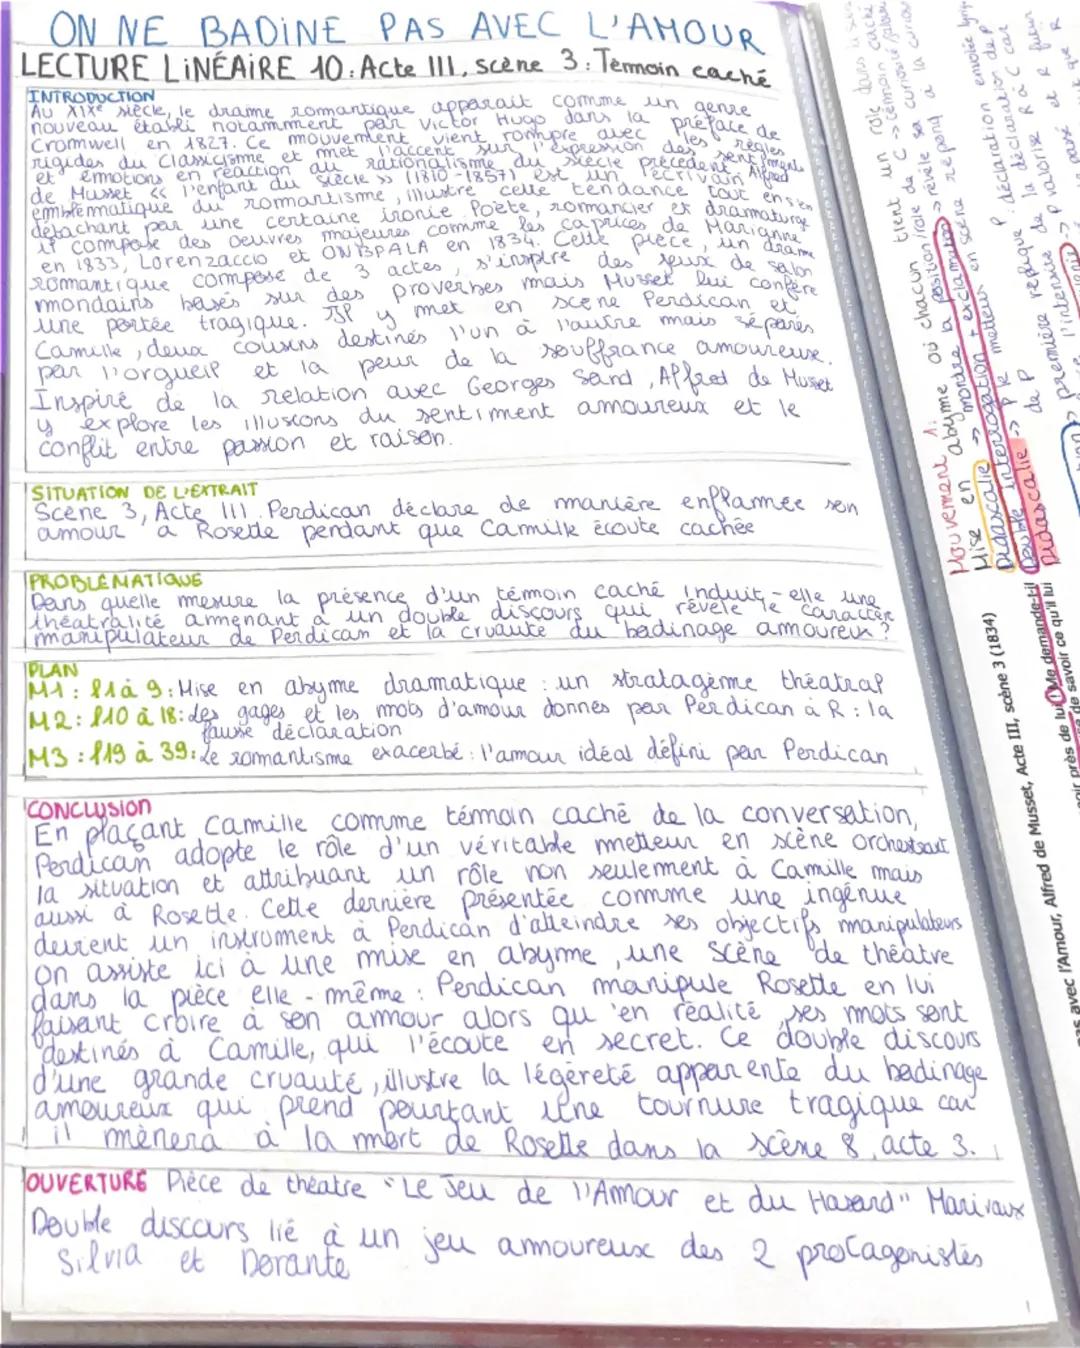 ON NE BADINE PAS AVEC L'AMOUR
LECTURE LINÉAIRE 10: Acte III, scène 3: Témoin caché
INTRODUCTION
Au XIXe siècle, le drame romantique apparait comme un genre
nouveau établi notamment par Victor Hugo dans la préface de
Cromwell en 1827. Ce mouvement vient rompre avec les règles
rigides du Classicisme et met l'accent sur l'expression des sentiments
et émotions en réaction au rationalisme du siècle précédent. Alfred
de Musset « l'enfant du siècle » (1810-1857) est un écrivain
emblématique du romantisme, illustre cette tendance tout en s'en
détachant par une certaine ironie. Poète, romancier et dramaturge
il compose des oeuvres majeures comme les caprices de Marianne
en 1833, Lorenzaccio et ONBPALA en 1834. Cette pièce, un drame
romantique composé de 3 actes, s'inspire des jeux de salon
mondains basés sur des proverbes mais Musset lui confère
une portée tragique. Il y met en scène Perdican et
Camille, deux cousins destinés l'un à l'autre mais séparés
par l'orgueil et la peur de la souffrance amoureuse.
Inspiré de la relation avec Georges Sand, Alfred de Musset
y explore les illusions du sentiment amoureux et le
conflit entre passion et raison.
SITUATION DE L'EXTRAIT
Scène 3, Acte III. Perdican déclare de manière enflammée son
amour à Rosette pendant que Camille écoute cachée
PROBLÉMATIQUE
Dans quelle mesure la présence d'un témoin caché induit-elle une
théatralité amenant à un double discours qui révèle le caractère
manipulateur de Perdican et la cruauté du badinage amoureux?
PLAN
M1: l1 à 9: Mise en abyme dramatique: un stratagème théatral
M2: l10 à 18: Les gages et les mots d'amour donnés par Perdican à R: la
fausse déclaration
M3: l19 à 39: Le romantisme exacerbé: l'amour idéal défini par Perdican
CONCLUSION
En plaçant Camille comme témoin caché de la conversation,
Perdican adopte le rôle d'un véritable metteur en scène orchestrant
la situation et attribuant un rôle non seulement à Camille mais
aussi à Rosette. Cette dernière présentée comme une ingénue
devient un instrument à Perdican d'atteindre ses objectifs manipulateurs
On assiste ici à une mise en abyme, une scène de théâtre
dans la pièce elle-même: Perdican manipule Rosette en lui
faisant croire à son amour alors qu'en réalité, ses mots sont
destinés à Camille, qui l'écoute en secret. Ce double discours
d'une grande cruauté, illustre la légèreté apparente du badinage
amoureux qui prend pourtant une tournure tragique car
il mènera à la mort de Rosette dans la scène 8, acte 3.
OUVERTURE Pièce de théatre "Le Jeu de l'Amour et du Hasard" Marivaux
Double discours lié à un jeu amoureux des 2 protagonistes
Silvia et Dorante
1
Mouvement 1:
Mise en abyme où chacun tient un rôle dans
Didascalie -> montre la position/rôle de C -> témoin caché
Double interrogation + exclamation -> révèle sa curiosité
-> P le metteur en scène répond à la curiosité
de P
Didascalie
première réplique P: déclaration
de la déclaration
l'intensité
P valorise R
pas avec l'Amour, Alfred de Musset, Acte III, scène 3 (1834)
près de lui? Me demande-t-il
de savoir ce qu'il lui